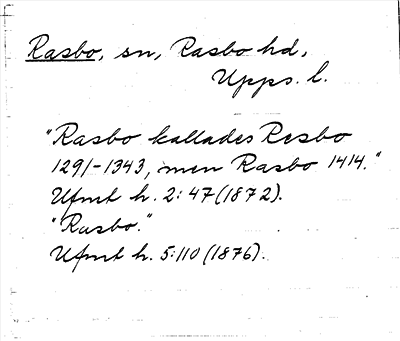 Rasbo, sn, Rasbo hd,
Upps. l.
"Rasbo kallades Resbo
1291-1343, men Rasbo 1414."
Ufmt h. 2:47(1872).
"Rasbo."
Ufmt h. 5:110(1876).